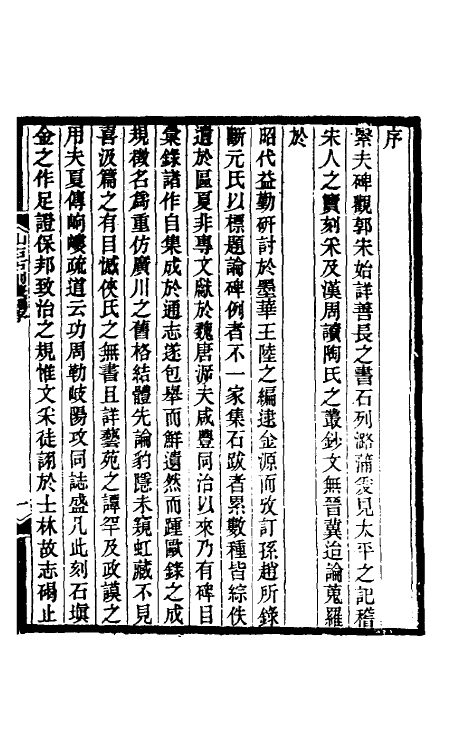 序
緊夫碑觀郭朱始詳善長之書石列潞蒲爰見太平之記稽
宋人之寶刻采及漢周讀陶氏之叢鈔文無晉冀迨論蒐羅
於
昭代益勤研討於墨華王陸之編逮金源而攷訂孫趙所錄
斷元氏以標題論碑例者不一家集石跋者累數種皆綜佚
遺於區夏非專文獻於魏唐源夫咸豐同治以來乃有碑目
彙錄諸作自集成於通志遂包舉而鮮遺然而踵歐錄之成
規徵名爲重仿廣川之舊格結體先論豹隱未窺虹藏不見
喜汲篇之有目憾俠氏之無書且詳藝苑之譚罕及政謨之
用夫夏傳岣嶁疏道云功周勒岐陽攻同誌盛凡此刻石塡
金之作足證保邦致治之規惟文采徒詡於士林故志碣止
序
一